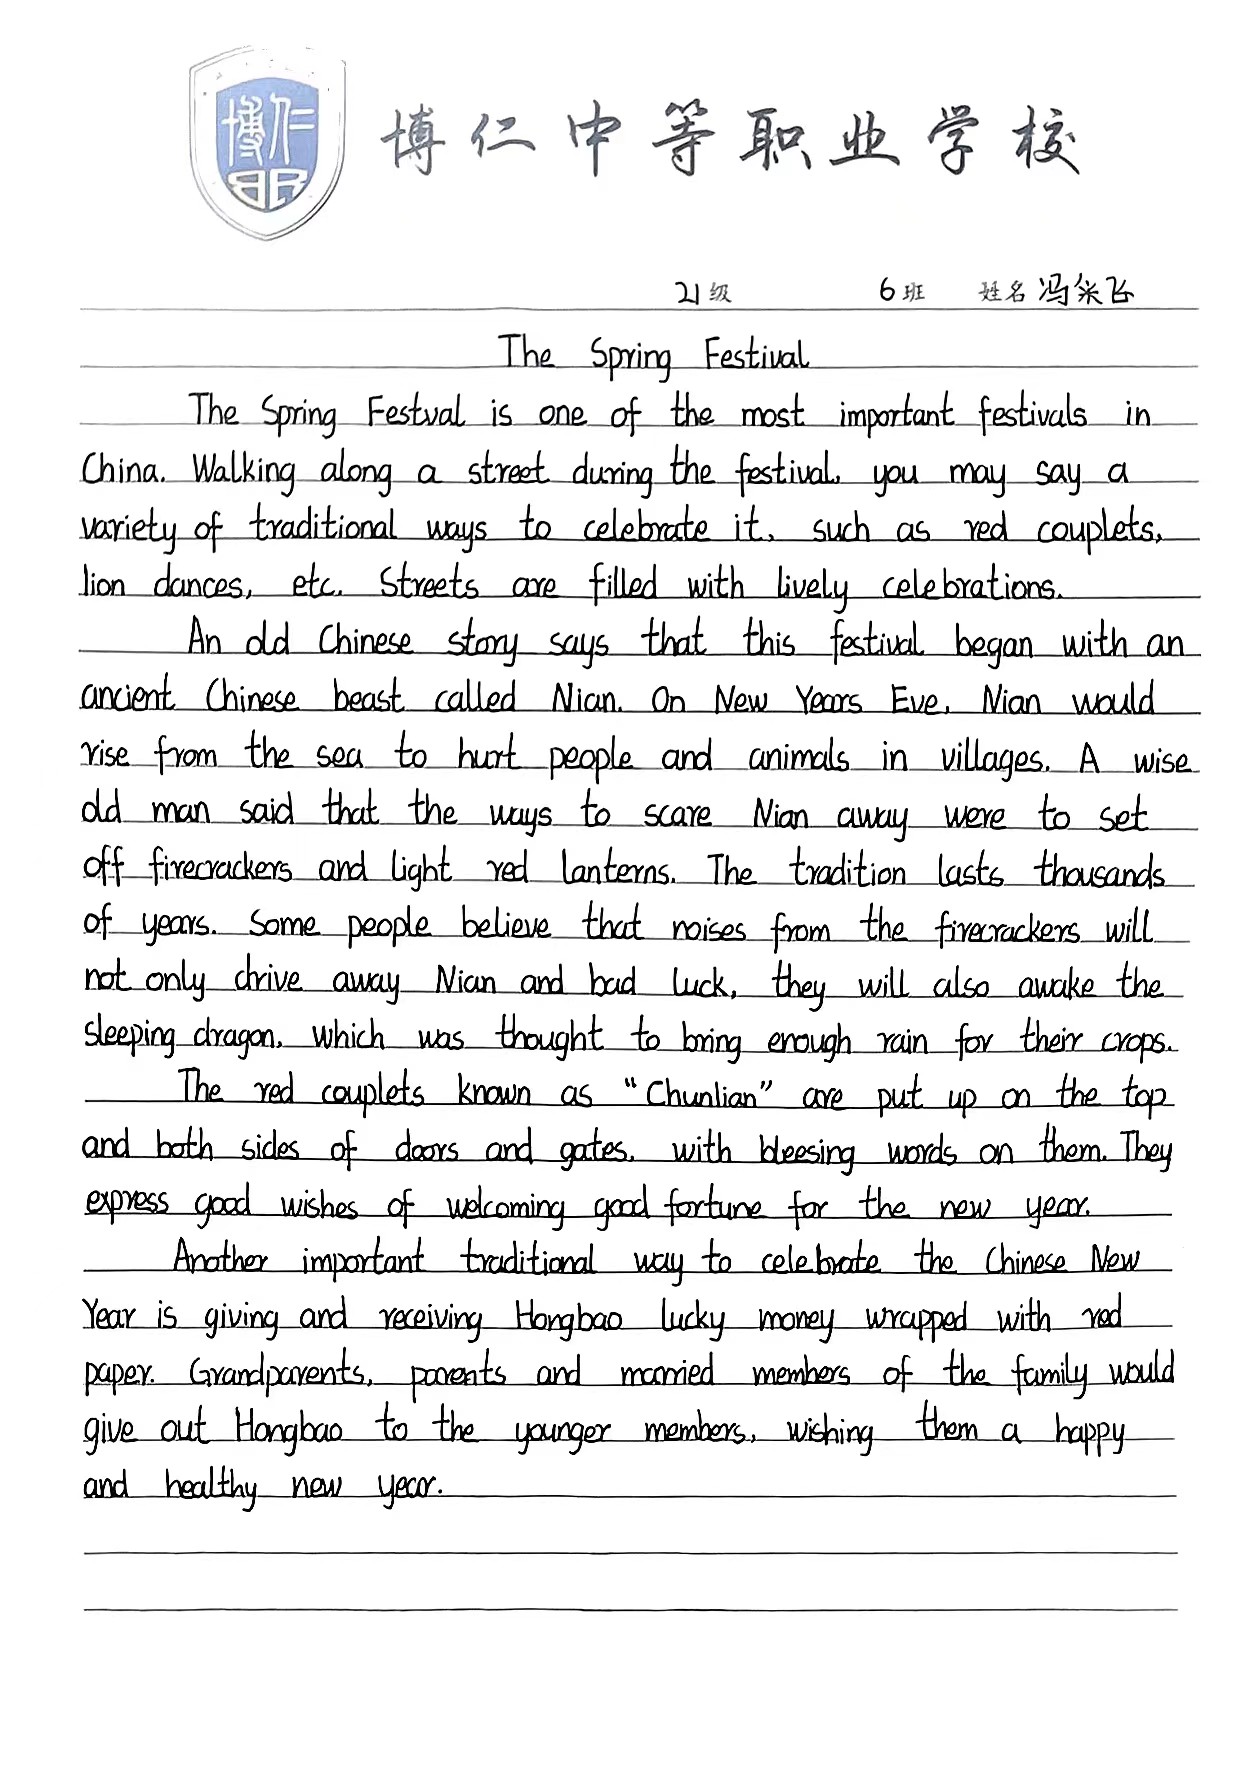 博仁
BR
博仁中等职业学校
21级 6班 姓名 冯柴飞
The Spring Festival
The Spring Festval is one of the most important festivals in
China. Walking along a street during the festival, you may say a
variety of traditional ways to celebrate it, such as red couplets,
lion dances, etc. Streets are filled with lively celebrations.
An old Chinese story says that this festival began with an
ancient Chinese beast called Nian. On New Years Eve, Nian would
rise from the sea to hurt people and animals in villages. A wise
old man said that the ways to scare Nian away were to set
off firecrackers and light red lanterns. The tradition lasts thousands
of years. Some people believe that noises from the firecrackers will
not only drive away Nian and bad luck, they will also awake the
sleeping dragon, which was thought to bring enough rain for their crops.
The red couplets known as "Chunlian" are put up on the top
and both sides of doors and gates, with bleesing words on them. They
express good wishes of welcoming good fortune for the new year.
Another important traditional way to celebrate the Chinese New
Year is giving and receiving Hongbao lucky money wrapped with red
paper. Grandparents, parents and married members of the family would
give out Hongbao to the younger members, wishing them a happy
and healthy new year.